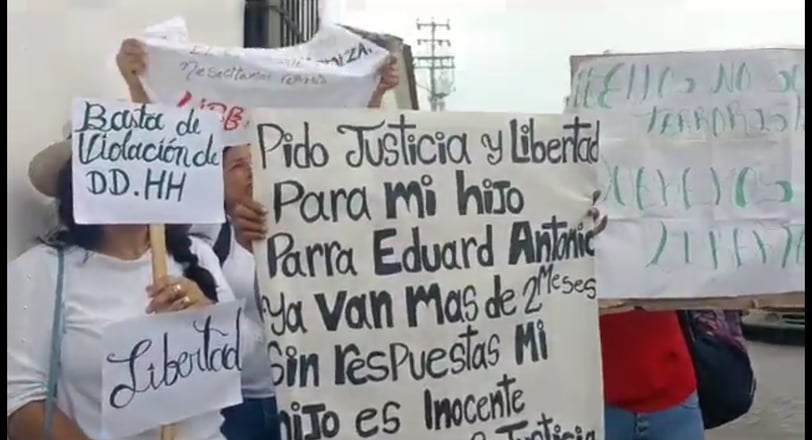 Necesitamos verlos
LIBE
Basta de
Violación de
DD.HH
Libertad
Pido Justicia y Libertad
Para mi hijo
Parra Eduard Antonio
Ya Van mas de 2 Meses
Sin respuestas Mi
hijo es Inocente
Justicia
NO
TERRORIS